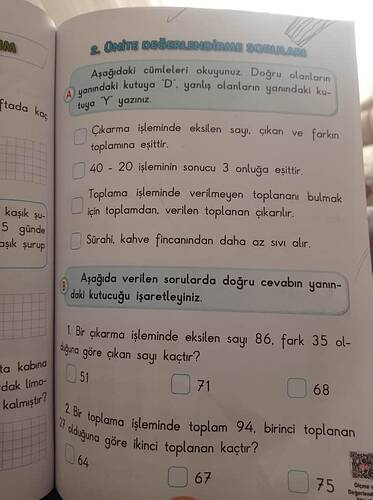 2. ÜNİTE DEĞERLENDİRME SORULARI
A
Aşağıdaki cümleleri okuyunuz. Doğru olanların
yanındaki kutuya "D", yanlış olanların yanındaki ku-
tuya "Y" yazınız.
Çıkarma işleminde eksilen sayı, çıkan ve farkın
toplamına eşittir.
40 - 20 işleminin sonucu 3 onluğa eşittir.
Toplama işleminde verilmeyen toplananı bulmak
için toplamdan, verilen toplanan çıkarılır.
Sürahi, kahve fincanından daha az sıvı alır.
B
Aşağıda verilen sorularda doğru cevabın yanın-
daki kutucuğu işaretleyiniz.
1. Bir çıkarma işleminde eksilen sayı 86, fark 35 ol-
duğuna göre çıkan sayı kaçtır?
51
71
68
2. Bir toplama işleminde toplam 94, birinci toplanan
27 olduğuna göre ikinci toplanan kaçtır?
64
67
75
ftada kaç
kaşık şu-
5 günde
aşık şurup
ta kabına
dak limo-
kalmıştır?